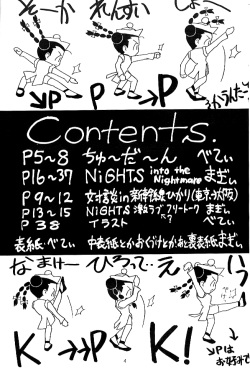 そーか れんすい しょー
↘P P→P
Contents
P5～8 ちゅ～だ～ん べてぃ
P16～37 NiGHTS into the Nightmare まぎぃ
P9～12 対談 in 新幹線ひかり(東京→大阪)
P13～15 NiGHTS フリートーク まぎぃ
P38 イラスト べてぃ
表紙・べてぃ 中表紙とかおくづけとかあと裏表紙 まぎぃ
なまけー ひろって‥ えいっ
K →→P K!
↘Pは
お好みで
4